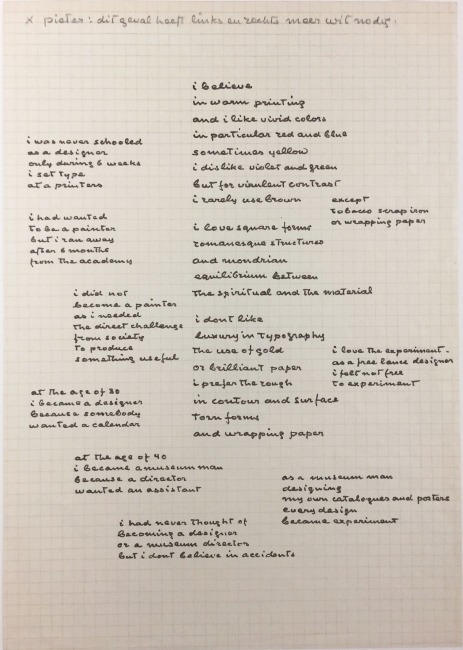 x pieter: dit geval hoeft links en rechts meer wit nodig.
i believe
in warm printing
and i like vivid colors
in particular red and blue
sometimes yellow
i dislike violet and green
but for virulent contrast
i rarely use brown
except
tobacco scrap iron
or wrapping paper
i love square forms
romanesque structures
and mondrian
equilibrium between
the spiritual and the material
i dont like
luxury in typography
the use of gold
or brilliant paper
i prefer the rough
in contour and surface
torn forms
and wrapping paper
i was never schooled
as a designer
only during 6 weeks
i set type
at a printers
i had wanted
to be a painter
but i ran away
after 6 months
from the academy
i did not
become a painter
as i needed
the direct challenge
from society
to produce
something useful
at the age of 30
i became a designer
because somebody
wanted a calendar
i love the experiment.
as a free lance designer
i felt not free
to experiment
at the age of 40
i became a museum man
because a director
wanted an assistant
as a museum man
designing
my own catalogues and posters
every design
became experiment
i had never thought of
becoming a designer
or a museum director
but i dont believe in accidents